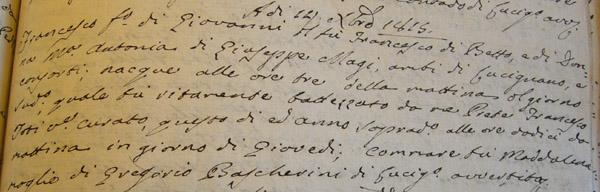 A di 14 xbre 1815.
Francesco fo di Giovanni fu Francesco di Betto, e di Don-
na Ma Antonia di Giuseppe Magi, ambi di Lucignano, e
consorti: nacque alle ore tre della mattina del giorno
sudo: quale fù ritamente battezzato da me Prete Francesco
Toti vo: curato, questo dì ed anno soprado: alle ore dodici da
mattina in giorno di Giovedì; commare fu Maddalena
moglie di Gregorio Bascherini di Lucigo: avvertita